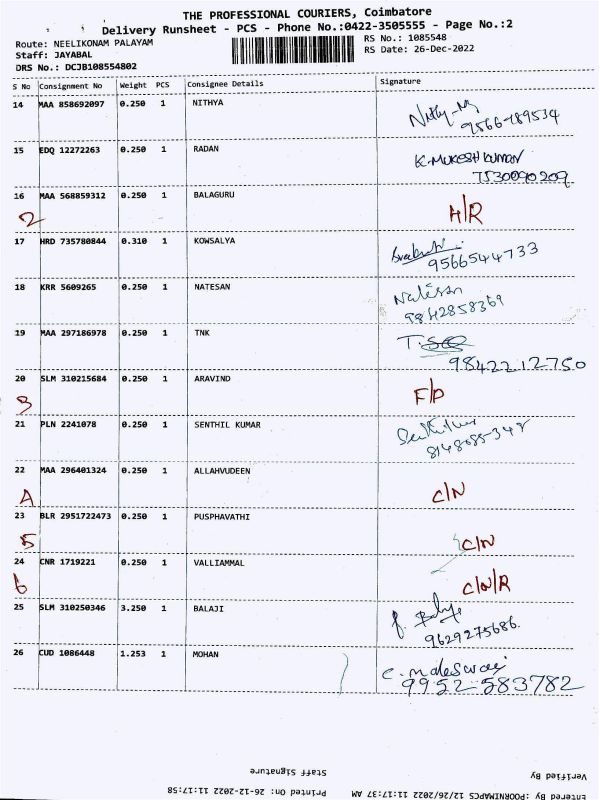 THE PROFESSIONAL COURIERS, Coimbatore
Delivery Runsheet - PCS - Phone No.:0422-3505555 - Page No.:2
Route: NEELIKONAM PALAYAM RS No.: 1085548
Staff: JAYABAL RS Date: 26-Dec-2022
DRS No.: DCJB108554802
S No Consignment No Weight PCS Consignee Details Signature
14 MAA 858692097 0.250 1 NITHYA
9566789534
15 EDQ 12272263 0.250 1 RADAN K. MUKESH KUMAR
7530090209
16 MAA 568859312 0.250 1 BALAGURU
2 H/R
17 HRD 735780844 0.310 1 KOWSALYA
9566544733
18 KRR 5609265 0.250 1 NATESAN Natesan
9842858369
19 MAA 297186978 0.250 1 TNK
9842212750
20 SLM 310215684 0.250 1 ARAVIND
3 F/P
21 PLN 2241078 0.250 1 SENTHIL KUMAR
8148085348
22 MAA 296401324 0.250 1 ALLAHVUDEEN
4 C/N
23 BLR 2951722473 0.250 1 PUSPHAVATHI
5 C/N
24 CNR 1719221 0.250 1 VALLIAMMAL
6 C/N/R
25 SLM 310250346 3.250 1 BALAJI
9629275686
26 CUD 1086448 1.253 1 MOHAN
9952 583782
Staff Signature Verified By
Printed On: 26-12-2022 11:17:58 Entered By :POORNIMAPCS 12/26/2022 11:17:37 AM